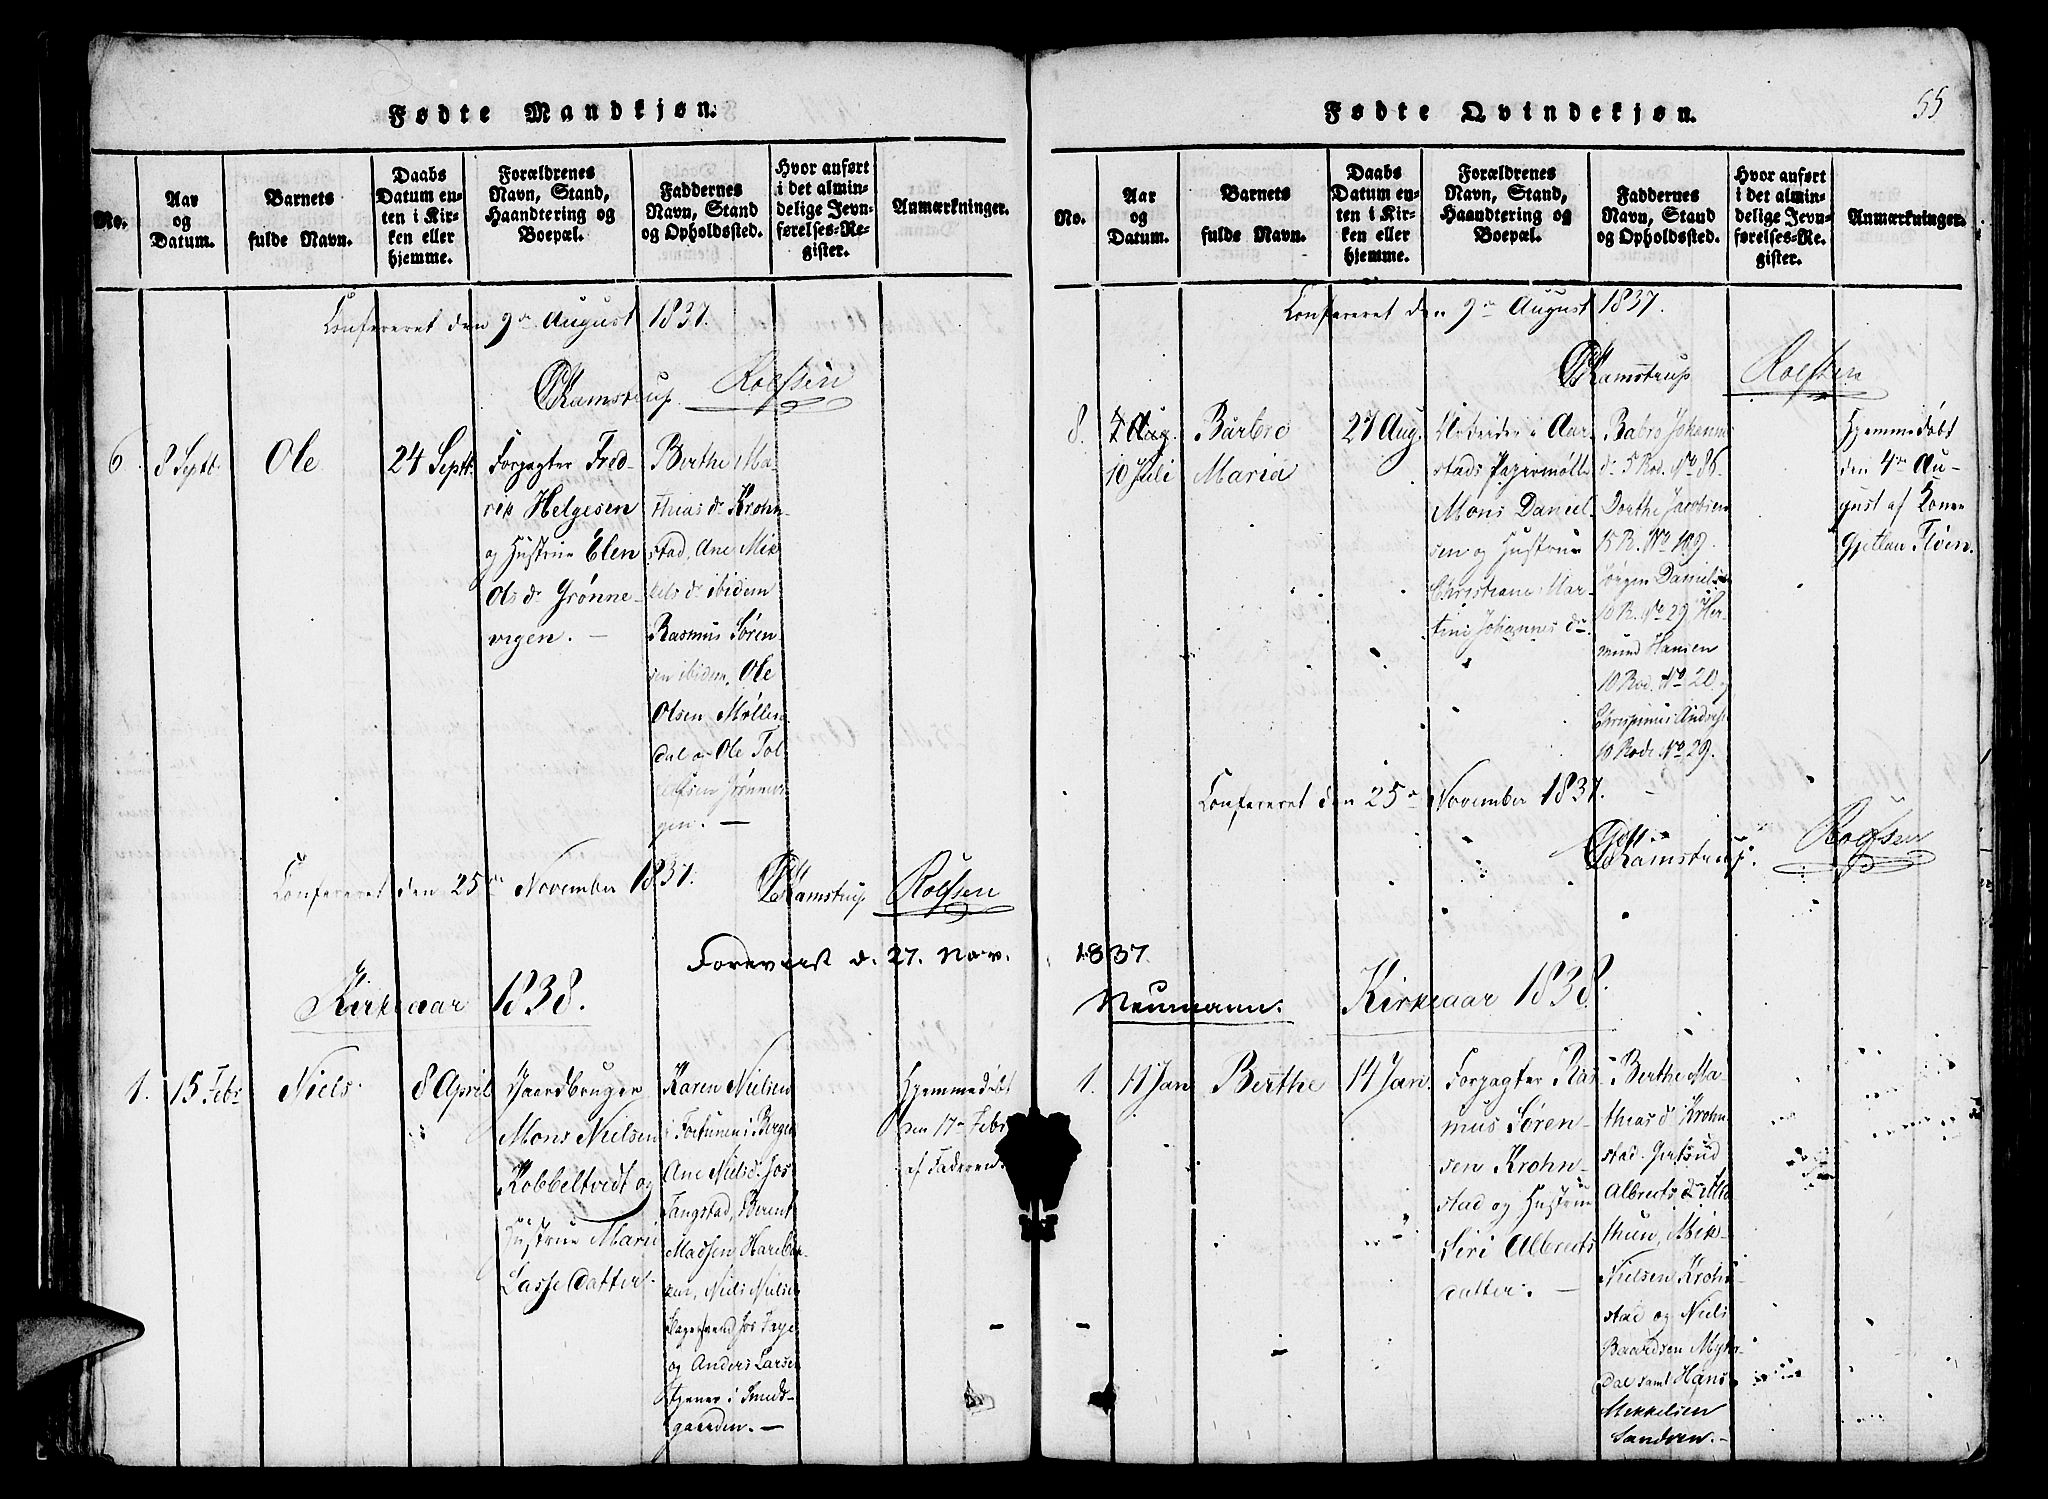 Fødte Mandkjøn.
No.
Aar
og
Datum.
Barnets
fulde Navn.
Daabs
Datum en-
ten i Kir-
ken eller
hjemme.
Forældrenes
Navn, Stand,
Haandtering og
Boepæl.
Faddernes
Navn, Stand
og Opholdssted.
Hvor anført
i det almin-
delige Jevn-
førelses-Re-
gister.
Anmærkninger.
Confereret den 9de August 1837.
Ramstrup Rolfsen
6
8 Septb.
Ole
24 Septb.
Forpagter Fred-
rik Helgesen
og Hustrue Elen
Ols dr Grønne-
vigen. —
Berthe Ma-
thias dr Krohn-
stad, Ane Mik
kels dr ibidem
Rasmus Søren
sen ibidem, Ole
Olsen Møllen
dal og Ole Tol
lefsen Grønnevi
gen. —
Confereret den 25de November 1837.
Ramstrup Rolfsen
Foreviist d. 27. Nov.
Kirkeaar 1838.
1.
15 Febr
Niels
8 April
Gaardbruger
Mons Nielsen
Kobbeltvedt og
Hustrue Marie
Lasse Datter.
Karen Nielsen
i Fortunen i Bergen
Ane Niels d. hos
Fangstad, Berent
Madsen,
Niels Nielsen
hos Faye
og Anders Larsen
tjener i Smeds-
gaarden. —
Hjemmedøbt
den 17de Febr
af Faderen.
Fødte Qvindekjøn.
55
No.
Aar
og
Datum.
Barnets
fulde Navn.
Daabs
Datum en-
ten i Kir-
ken eller
hjemme.
Forældrenes
Navn, Stand,
Haandtering og
Boepæl.
Faddernes
Navn, Stand
og Opholdssted.
Hvor anført
i det almin-
delige Jevn-
førelses-Re-
gister.
Anmærkninger.
Confereret den 9de August 1837.
Ramstrup Rolfsen
8.
4 Aug.
10 Juli
Barbro
Maria
27 Aug.
Arbeider i Aar-
stads Papirmølle
Mons Daniel-
sen og Hustrue
Christiane Mar-
tine Johannes dr
Babro Johannes
dr 5 Rod. No 86.
Dorthe Jacobsen
15 R. No 109.
Jørgen Danielsen
10 R. No 29, Her-
mund Hansen
10 Rod. No 20 og
Crispinus Andreas
10 Rode No 29.
Hjemmedøbt
den 4de Au-
gust af Konen
Gjetlau Fløen.
Confereret den 25de November 1837. —
Ramstrup. Rolfsen
1837.
Neumann.
Kirkeaar 1838.
1.
11 Jan
Berthe
14 Jan.
Forpagter Ras-
mus Søren-
sen Krohn-
stad og Hustrue
Siri Albrets
datter. —
Berthe Ma-
thias d. Krohn
stad. Gertrud
Albrets dr
Mik-
Nielsen Krohn
stad og Niels
Baardsen Myhr
dal samt Hans
Mekkelsen
Sandven. —